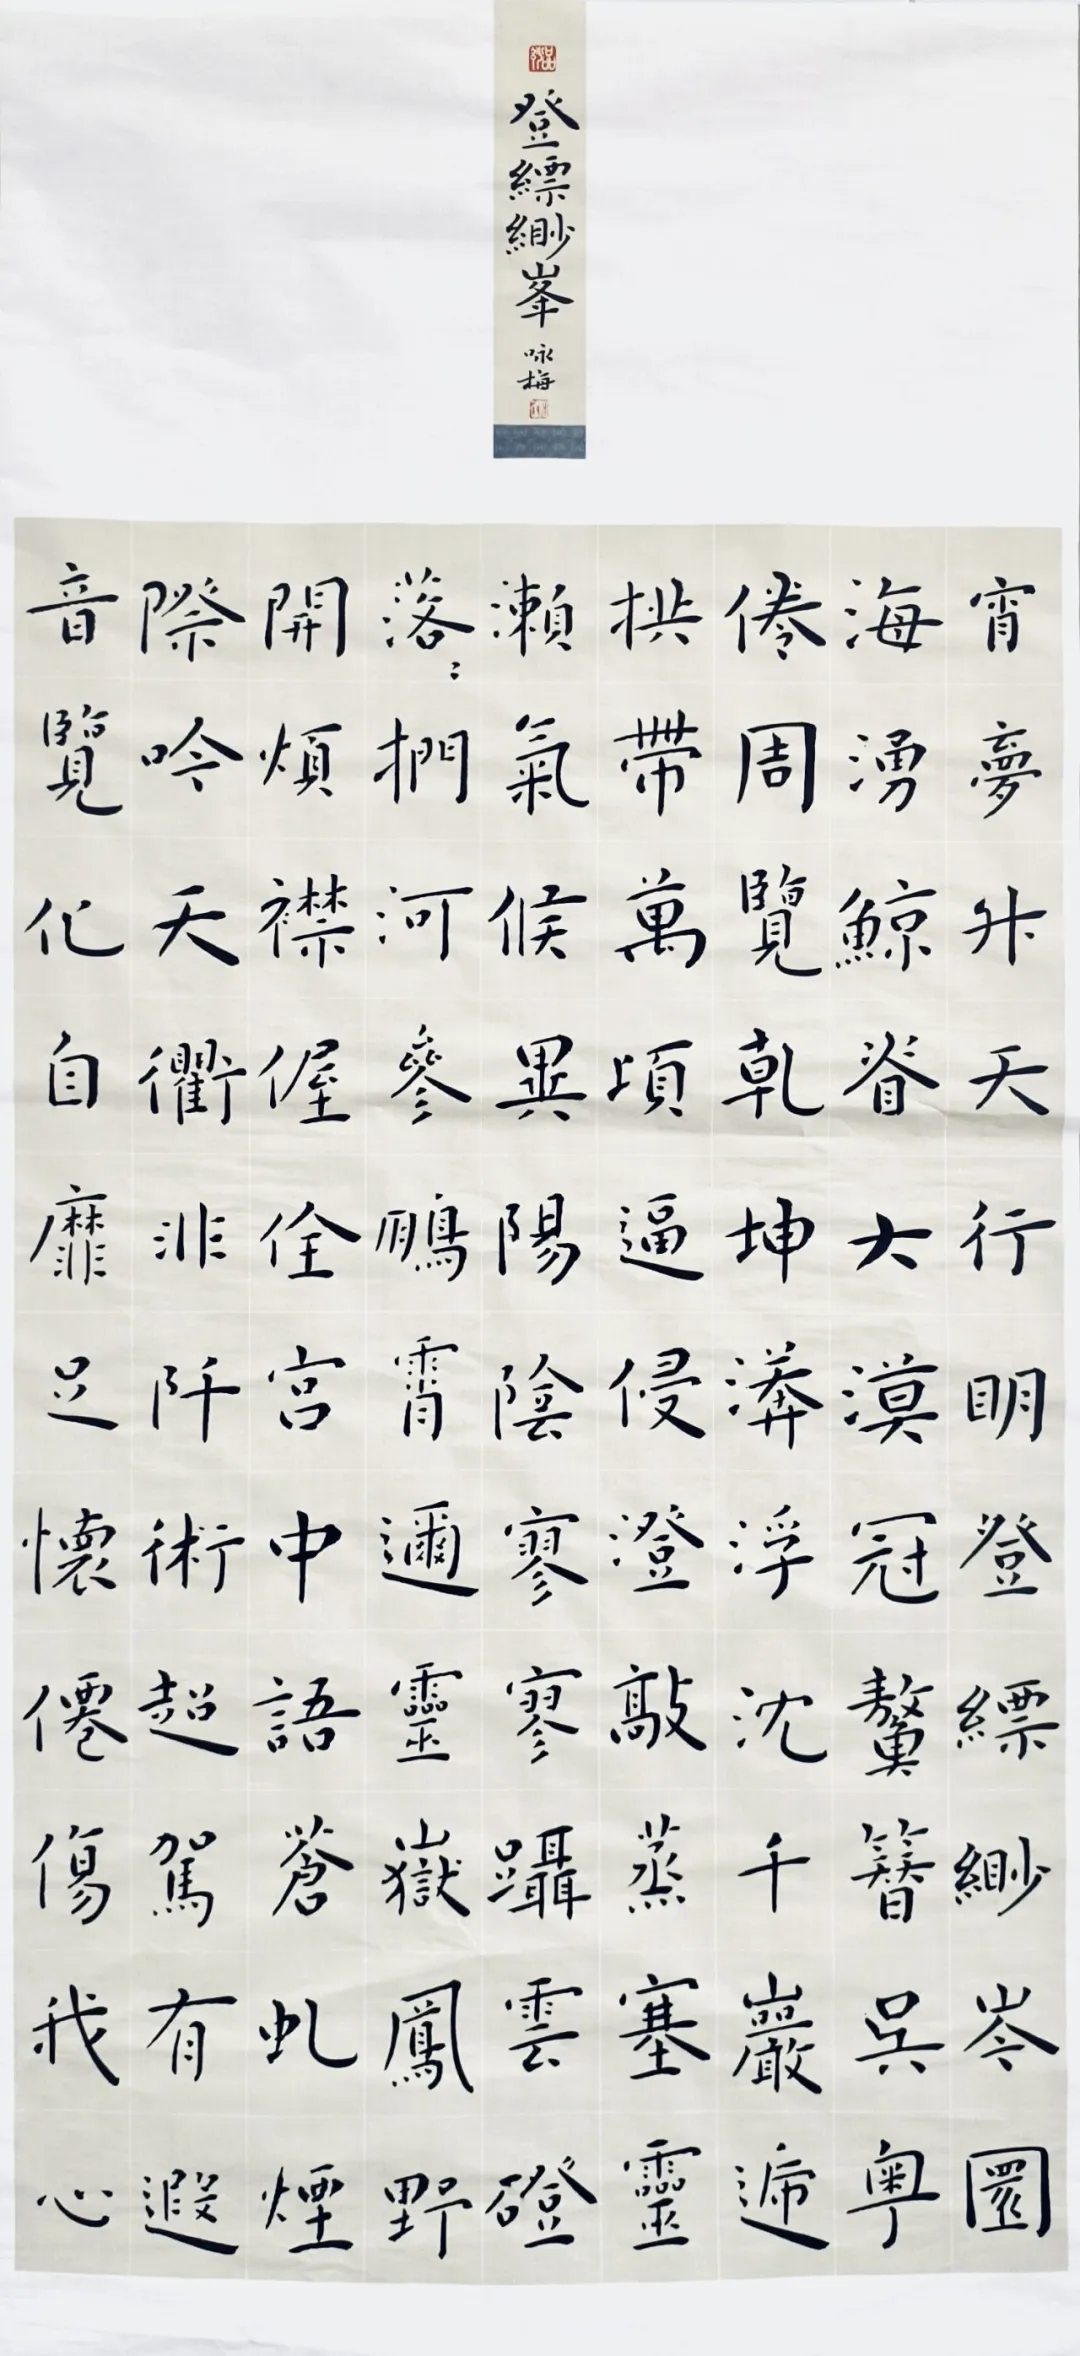 登縹緲峯
咏梅
宵夢升天行眀登縹緲岑圜
海湧鯨脊大漠冠鼇簪吳粵
倦周覽乾坤漭浮沈千巖遞
拱帶萬頃逼侵澄敲蒸塞靈
瀨氣候異陽陰寥寥躡雲磴
落〻捫河參鵬霄邇靈嶽鳳野
開煩襟偓佺宮中語蒼虬煙
際吟天衢非阡術超駕有遐
音覽化自靡足懷僊傷我心